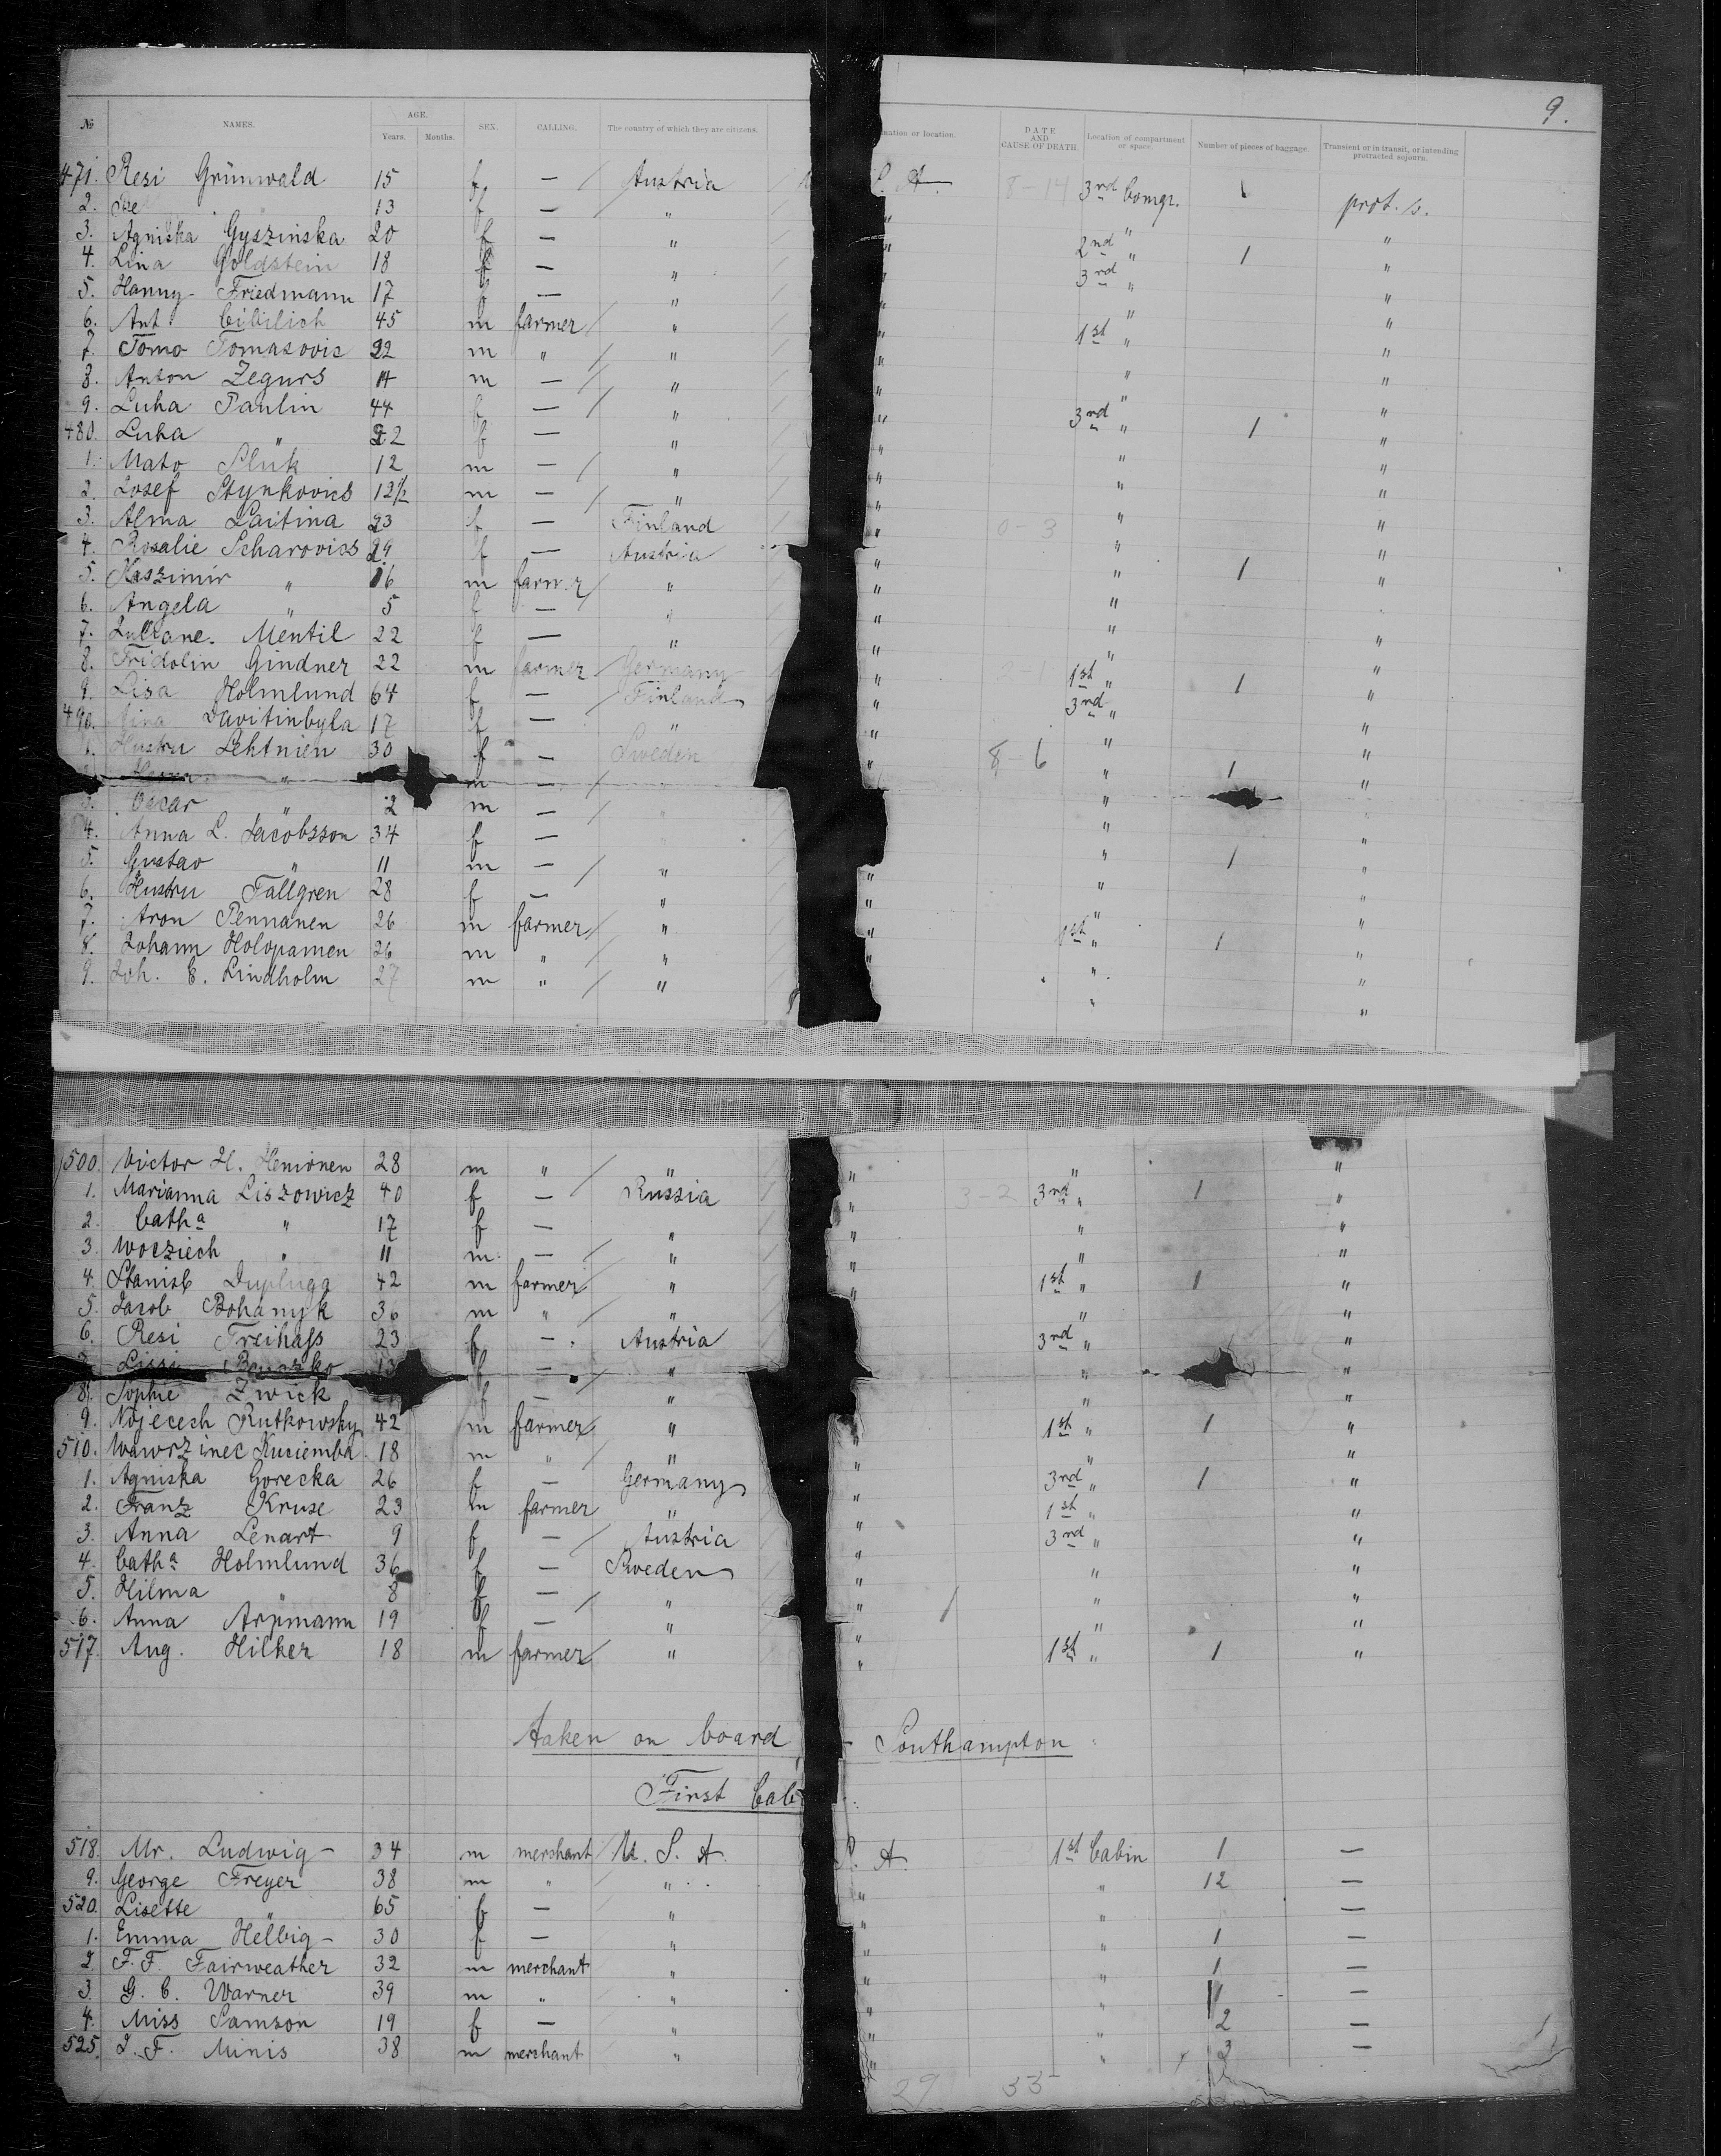 9.
No. NAMES. AGE. Years. Months. SEX. CALLING. The country of which they are citizens. nation or location. DATE AND CAUSE OF DEATH. Location of compartment or space. Number of pieces of baggage. Transient or in transit, or intending protracted sojourn.
471. Resi Grünwald 15 f. — / Austria S. A. 8-14 3rd Comgr. prot. s.
2. 13 f — / " " "
3. Agniska Gyszinska 20 f — " " 2nd " 1 "
4. Lina Goldstein 18 f — " 3rd " "
5. Hanny Friedmann 17 f — " " "
6. Ant. Cibilich 45 m farmer / " " 1st " "
7. Tomo Tomasovic 22 m " / " " " "
8. Anton Zegurs 14 m — / " " " "
9. Luha Paulin 44 f — / " " 3rd " 1 "
480. Luha " 22 f — " " " "
1. Mato Sluk 12 m — / " " " "
2. Josef Stynkovics 12½ m — / " " " "
3. Alma Laitina 23 f — Finland " 0-3 " "
4. Rosalie Scharovics 29 f — Austria " " 1 "
5. Kaszimir " 16 m farmer / " " " "
6. Angela " 5 f — / " " "
7. Mentil 22 f — " " " "
8. Fridolin Gindner 22 m farmer / Germany " 2-1 1st " 1 "
9. Lisa Holmlund 64 f — / Finland " 3rd " "
490. Davitinbyla 17 f — " " " "
1. Hustru Lehtnien 30 f — Sweden " 8-6 " 1 "
" m — /
3. Oscar " 2 m — / " "
4. Anna L. Jacobsson 34 f — " 1 "
5. Gustav " 11 m — / " " " "
6. Hustru Tallgren 28 f — " " " "
7. Aron Pennanen 26 m farmer / " " 1st " 1 "
8. Johann Holopamen 26 m " / " " " "
9. Joh. E. Lindholm 27 m " / " " "
500. Victor H. Henionen 28 m " / " " " "
1. Marianna Liszowicz 40 f — / Russia " 3-2 3rd " 1 "
2. Catha " 17 f — " " " "
3. Woeziech " 11 m. — / " " " "
4. Stanisl Duplugg 42 m farmer / " " 1st " 1 "
5. Jacob Bohanyk 36 m " / " " "
6. Resi Freihass 23 f — Austria 3rd " "
13 f — / " " "
8. Sophie Zwick f — " " "
9. Nojecech Rutkowsky 42 m farmer / " " 1st " 1 "
510. Wawrzinec Kuciemba 18 m " / " " " "
1. Agniska Gorecka 26 f — Germany " 3rd " 1 "
2. Franz Kruse 23 m farmer " " 1st " "
3. Anna Lenart 9 f — / Austria " 3rd " "
4. Catha Holmlund 36 f — Sweden " " "
5. Hilma " 8 f — / " " " "
6. Anna Arpmann 19 f — " " " "
517. Aug. Hilker 18 m farmer / " " 1st " 1 "
Taken on board Southampton
First Cab
518. Mr. Ludwig 34 m merchant / U. S. A. S. A. 1st Cabin 1 —
9. George Freyer 38 m " / " " " 12 —
520. Lisette " 65 f — " " " —
1. Emma Helbig 30 f — " " " 1 —
2. F. F. Fairweather 32 m merchant " " " 1 —
3. G. C. Warner 39 m " " " " 1 —
4. Miss Samson 19 f — " " " 2 —
525. J. F. Minis 38 m merchant " " " 3 —
29 33